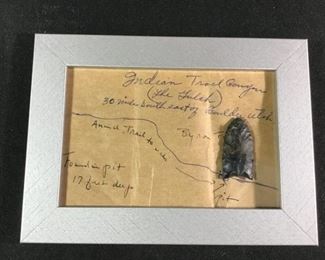 Indian Trail Canyon
(The Gulch)
30 miles south east of Boulder Utah
Animal Trail to
Found in pit
17 feet deep
pit